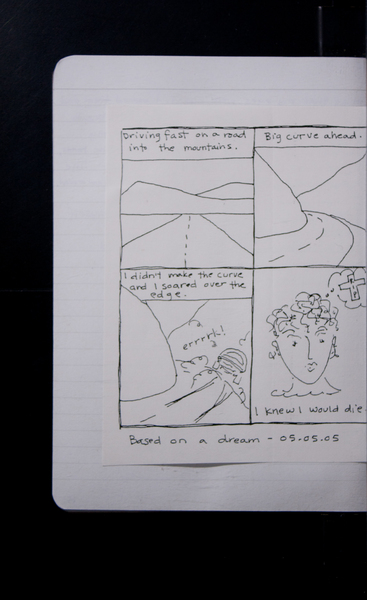 Driving fast on a road
into the mountains.
Big curve ahead.
I didn't make the curve
and I soared over the
edge.
errrrk!
I knew I would die.
Based on a dream - 05.05.05